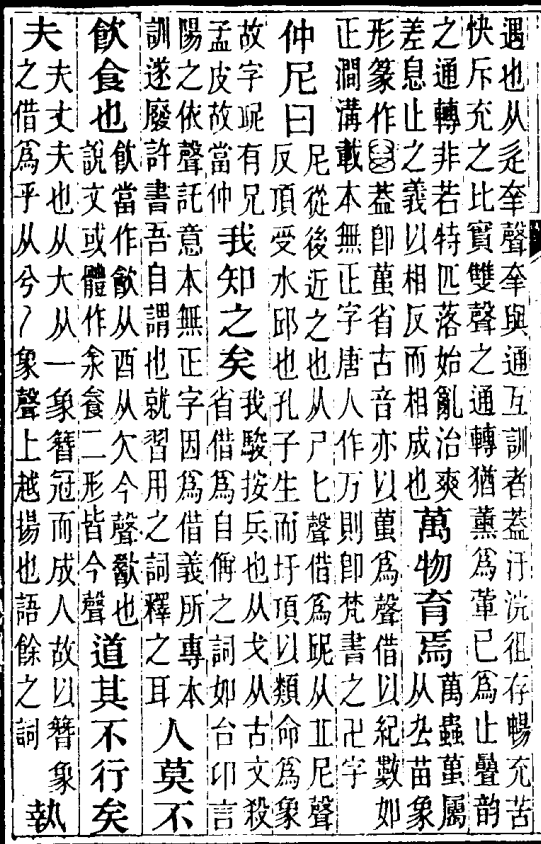 遇也从辵羍聲羍與通互訓者蓋汙浣徂存暢充苦
快斥充之比實雙聲之通轉猶薰為葷已為止疊韵
之通轉非若特匹落始亂治爽
差息止之義以相反而相成也
萬物育焉
萬蟲萬屬
从厹苗象
形篆作葢卽萬省古音亦以萬為聲借以紀數如
正澗溝載本無正字唐人作万則卽梵書之卍字
仲尼曰
尼從後近之也从尸匕聲借為屔从丘尼聲
反頂受水邱也孔子生而圩頂以類命為象
故字屔有兄
孟皮故當仲
我知之矣
我駿按兵也从戈从古文殺
省借為自偁之詞如台卬言
陽之依聲託意本無正字因為借義所專本
訓遂廢許書吾自謂也就習用之詞釋之耳
人莫不
飲食也
飲當作㱃从酉从欠今聲歠也
說文或體作汆食二形皆今聲
道其不行矣
夫
夫丈夫也从大从一象簪冠而成人故以簪象
之借為乎从兮丿象聲上越揚也語餘之詞
執